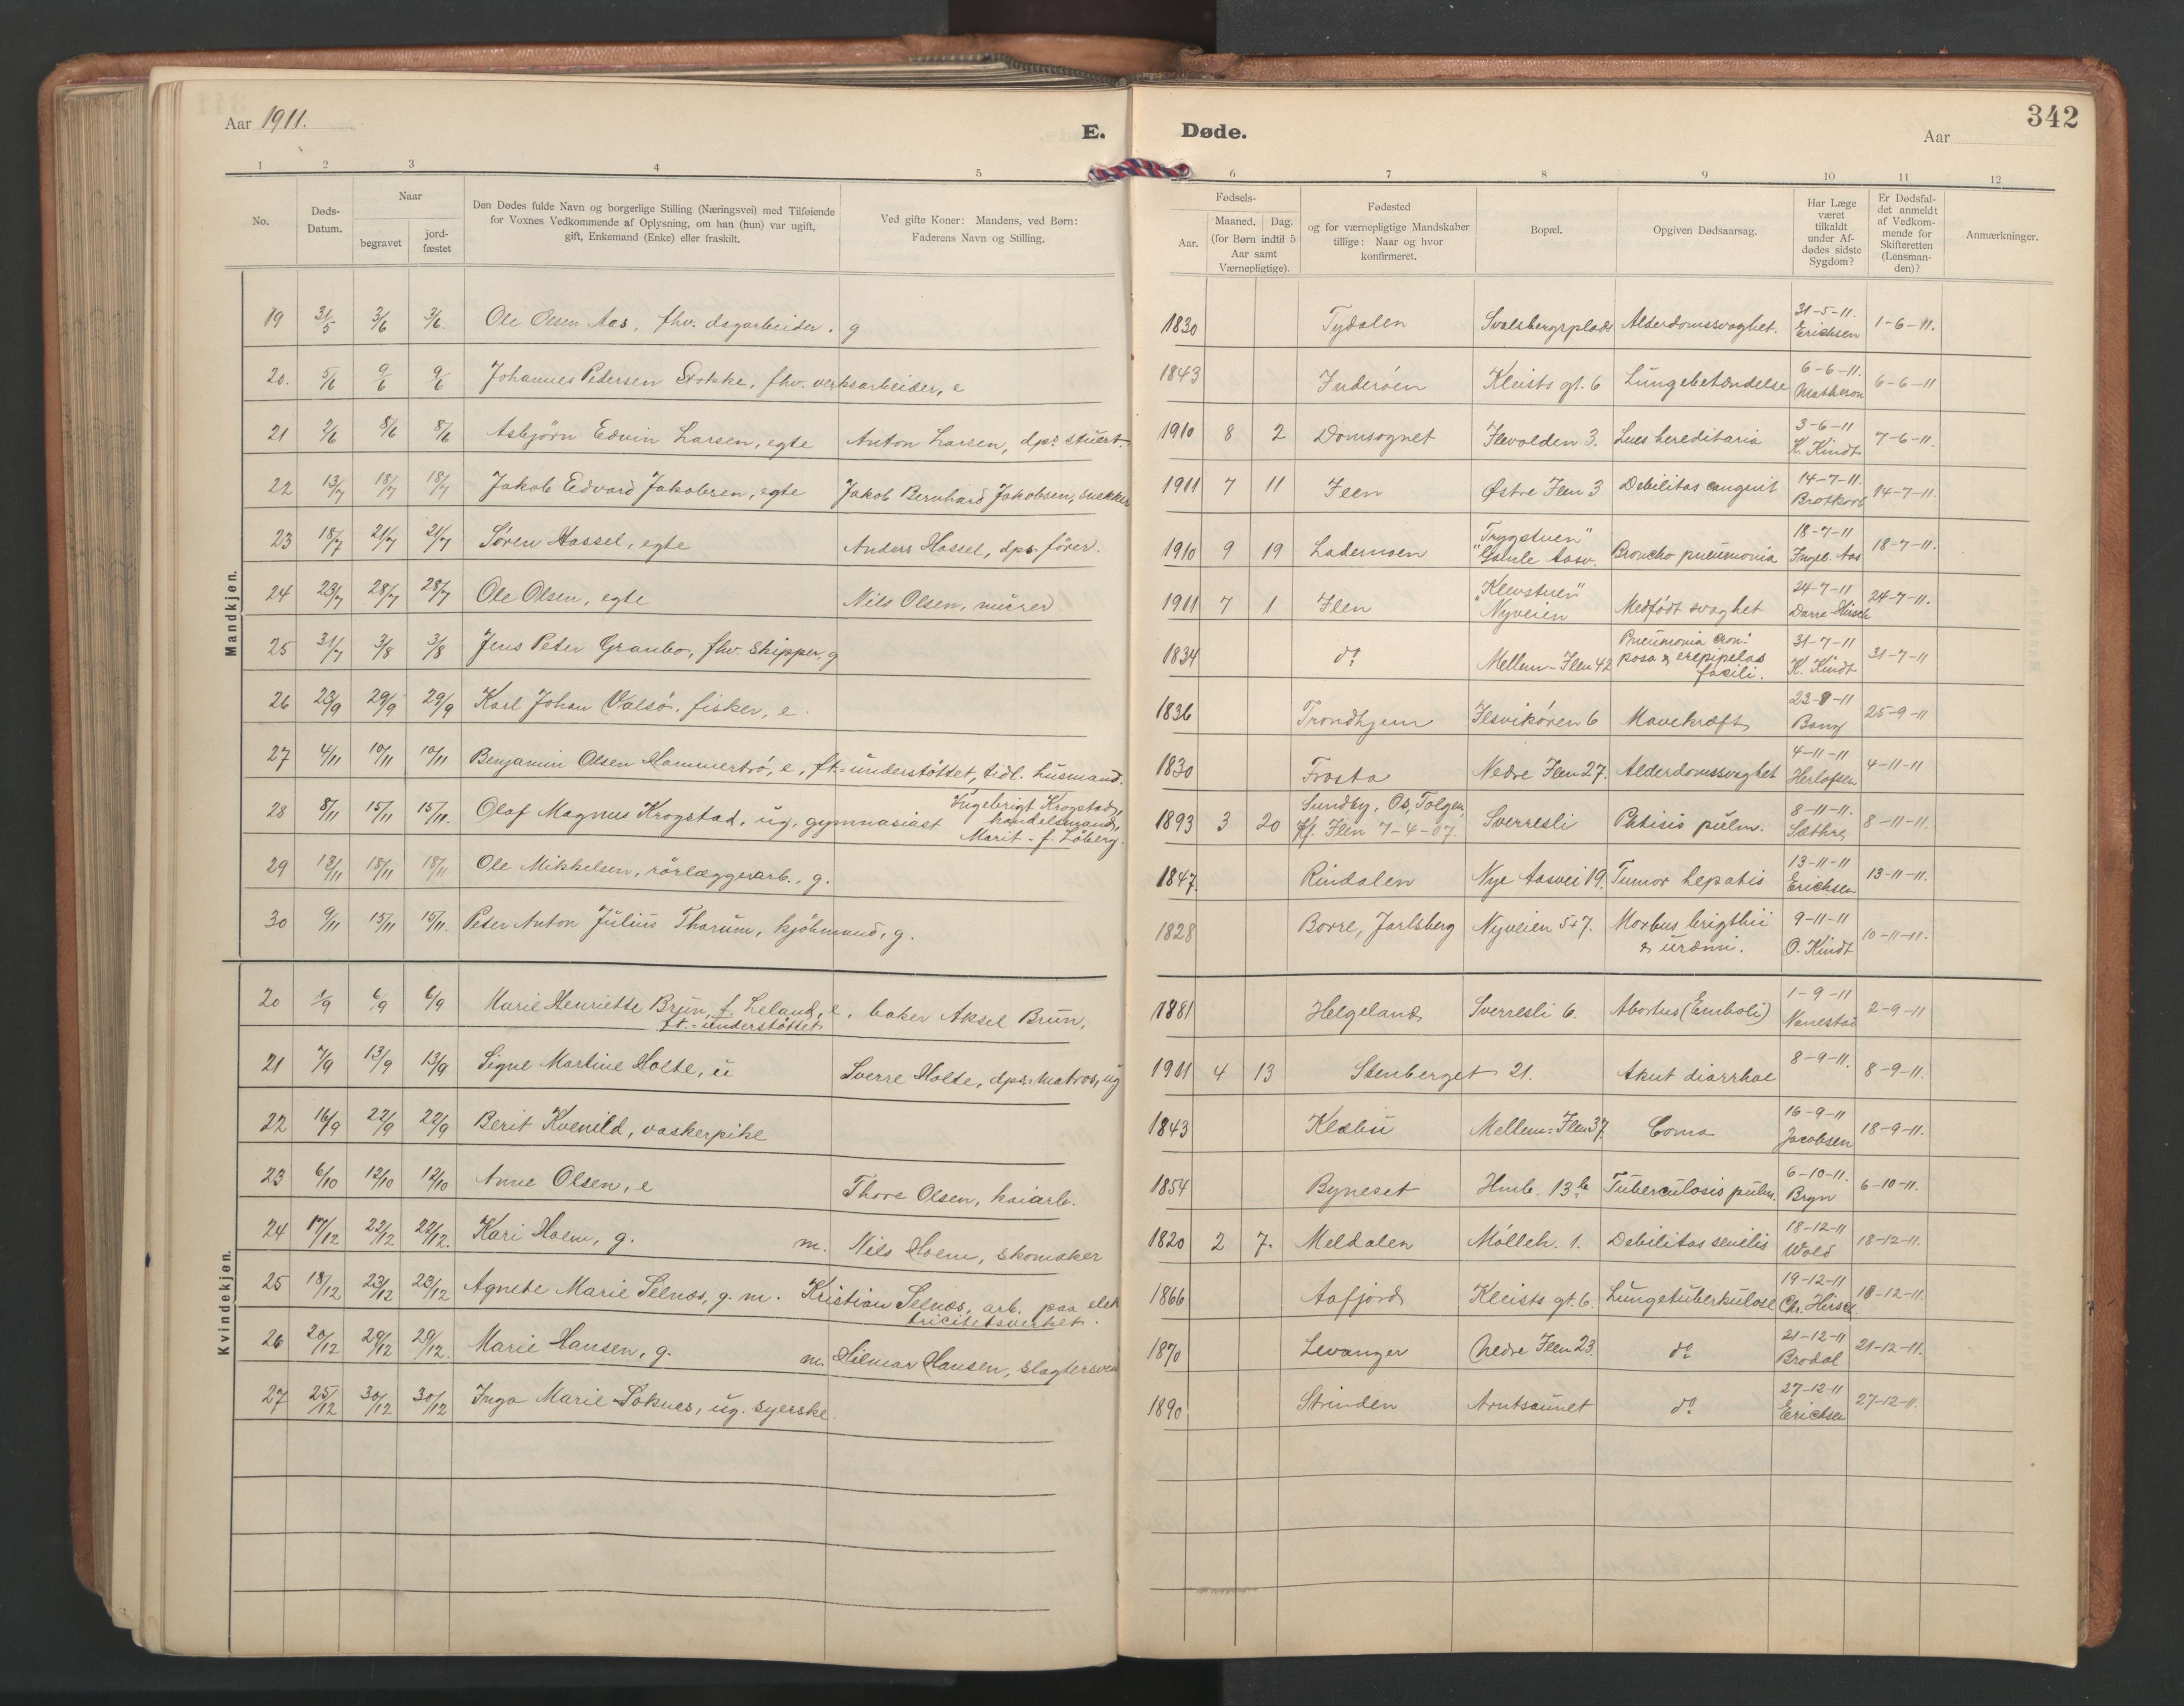 Aar 1911. E. Døde. Aar 342
1 2 3 4 5 6 7 8 9 10 11 12
No. Døds-Datum. Naar begravet jordfæstet Den Dødes fulde Navn og borgerlige Stilling (Næringsvei) med Tilføiende for Voxnes Vedkommende af Oplysning, om han (hun) var ugift, gift, Enkemand (Enke) eller fraskilt. Ved gifte Koner: Mandens, ved Børn: Faderens Navn og Stilling. Fødsels- Aar. Maaned. Dag. (for Børn indtil 5 Aar samt Værnepligtige). Fødested og for værnepligtige Mandskaber tillige: Naar og hvor konfirmeret. Bopæl. Opgiven Dødsaarsag. Har Læge været tilkaldt under Afdødes sidste Sygdom? Er Dødsfaldet anmeldt af Vedkommende for Skifteretten (Lensmanden)? Anmærkninger.
Mandkjøn.
19 31/5 3/6 3/6. Ole Olsen Aas, fhv. dagarbeider. g 1830 Tydalen Svalsbergsplads Alderdomssvaghet. 31-5-11. Erichsen 1-6-11.
20. 5/6 9/6 9/6 Johannes Pedersen Stokke, fhv. verksarbeider, e 1843 Inderøen Kleists gt. 6 Lungebetændelse 6-6-11. Matheson 6-6-11
21 2/6 8/6 8/6 Asbjörn Edvin Larsen, egte Anton Larsen, dps. stuert 1910 8 2 Domsognet Ilevolden 3. Lues hereditaria 3-6-11 K. Kindt 7-6-11.
22 13/7 18/7 18/7 Jakob Edvard Jakobsen, egte Jakob Bernhard Jakobsen, snekker 1911 7 11 Ilen Østre Ilen 3 Debilitas congenit 14-7-11. Brotkorb 14-7-11.
23 18/7 21/7 21/7 Søren Hassel, egte Anders Hassel, dps. fører. 1910 9 19 Lademoen "Trygstuen" Gamle Aasv. Broncho pneumonia 18-7-11 Ingeb. Aas 18-7-11.
24 23/7 28/7 28/7 Ole Olsen, egte Nils Olsen, murer 1911 7 1 Ilen "Klevstuen" Nyveien Medfödt svaghet 24-7-11 Darre-Hirsch 24-7-11.
25 31/7 3/8 3/8 Jens Peter Granbo, fhv. skipper, g 1834 do Mellem-Ilen 42 Pneumonia crouposa & erepipelas facili. 31-7-11 K. Kindt 31-7-11
26 23/9 29/9 29/9 Karl Johan Valsö. fisker, e. 1836 Trondhjem Ilsvikören 6 Mavekræft 23-9-11 Bang 25-9-11
27 4/11 10/11 10/11 Benjamin Olsen Hammertrö, e, ft.-understöttet, tidl. husmand. 1830 Frosta Nedre Ilen 27. Alderdomssvaghet 4-11-11 Herlofsen 4-11-11
28 8/11 15/11 15/11. Olaf Magnus Krogstad, ug, gymnasiast Ingebrigt Krogstad, handelsmand, Marit - f. Löberg. 1893 3 20 Sundby, Os, Tolgen, Kf. Ilen 7-4-07 Sverresli Phtisis pulm. 8-11-11. Sæthre 8-11-11.
29 13/11 18/11 18/11 Ole Mikkelsen, rörlæggerarb., g. 1847 Rindalen Nye Aasvei 19. Tumor hepatis 13-11-11 Erichsen 13-11-11.
30 9/11 15/11 15/11. Peter Anton Julius Tharum, kjöbmand, g. 1828 Borre, Jarlsberg Nyveien 5+7. Morbus brigthii & uræmi. 9-11-11 O. Kindt 10-11-11.
Kvindekjøn.
20 1/9 6/9 6/9 Marie Henriette Brun, f. Leland, e, ft.-understöttet baker Aksel Brun, 1881 Helgeland Sverresli 6. Abortus (Emboli) 1-9-11 Vanestad 2-9-11
21 7/9 13/9 13/9 Signe Martine Holte, u Sverre Holte, dps. matros, ug 1911 4 13 Stenberget 21. Akut diarrhoe 8-9-11. 8-9-11.
22 16/9 22/9 22/9 Berit Kvenild, vaskerpike 1843 Klæbu Mellem-Ilen 37 Coma 16-9-11 Jacobsen 18-9-11.
23 6/10 12/10 12/10 Anne Olsen, e Thore Olsen, kaiarb. 1854 Byneset Hmb. 13b Tuberculosis pulm. 6-10-11. Bryn 6-10-11.
24 17/12 22/12 22/12. Kari Hoem, g. m. Nils Hoem, skomaker 1820 2 7. Meldalen Mölleb. 1. Debilitas senilis 18-12-11 Wold 18-12-11.
25 18/12 23/12 23/12 Agnete Marie Selnæs, g. m. Kristian Selnæs, arb. paa elektricitetsverket. 1866 Aafjord Kleists gt. 6. Lungetuberkulose 19-12-11 Chr. Hirsch 18-12-11.
26 20/12 29/12 29/12. Marie Hansen, g. m. Hilmar Hansen, slagtersven 1870 Levanger Nedre Ilen 23. do 21-12-11 Brodal 21-12-11.
27 25/12 30/12 30/12 Inga Marie Soknes, ug. syerske. 1890 Strinden Arntsaunet do 27-12-11 Erichsen 27-12-11.